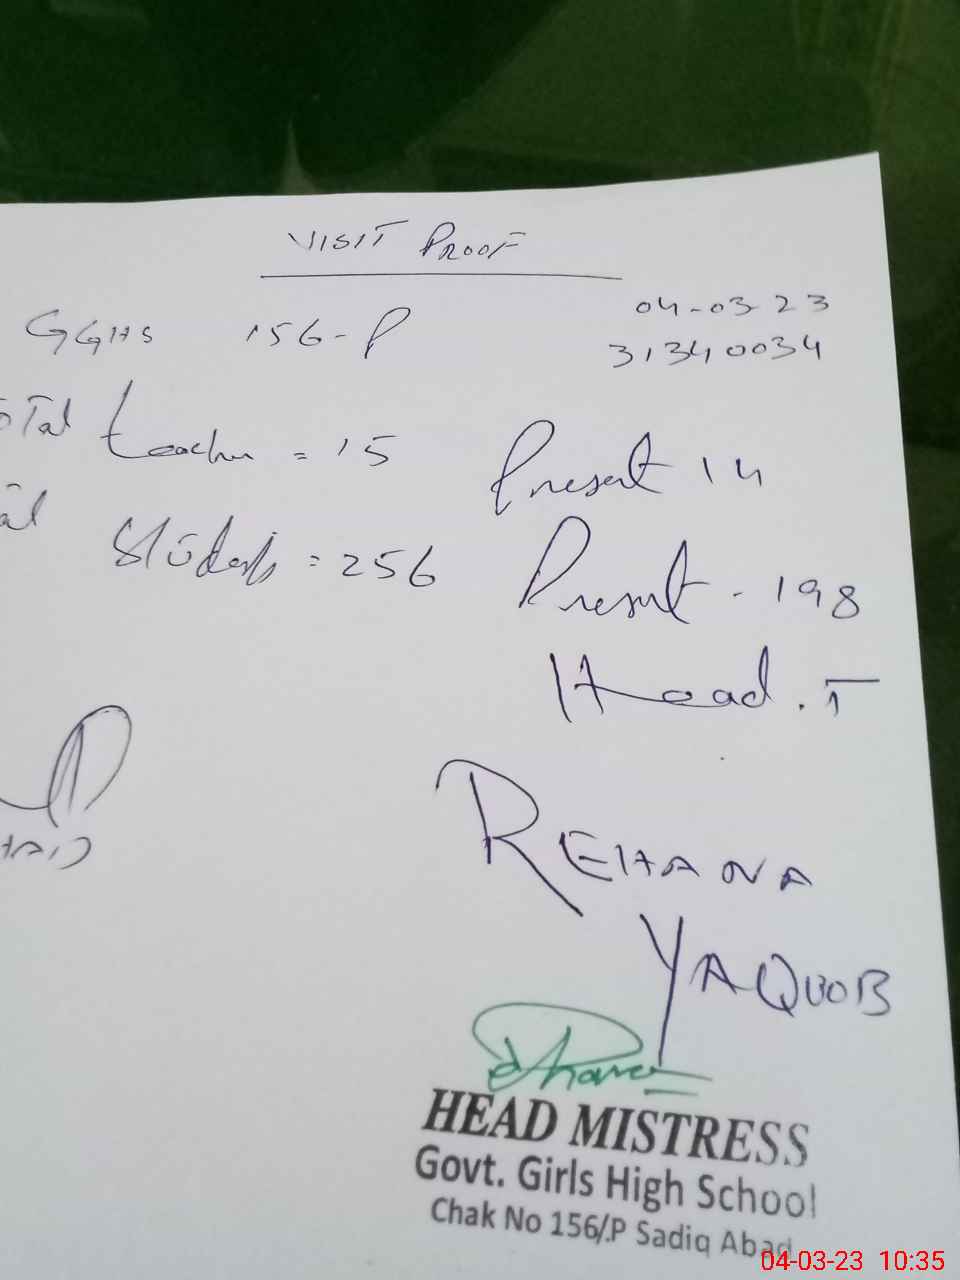 VISIT PROOF
04-03-23
GGHS 156-P
31340034
otal teacher = 15 Present 14
al Students = 256 Present - 198
Head. T
HAID
REHANA
YAQUOB
HEAD MISTRESS
Govt. Girls High School
Chak No 156/.P Sadiq Abad
04-03-23 10:35